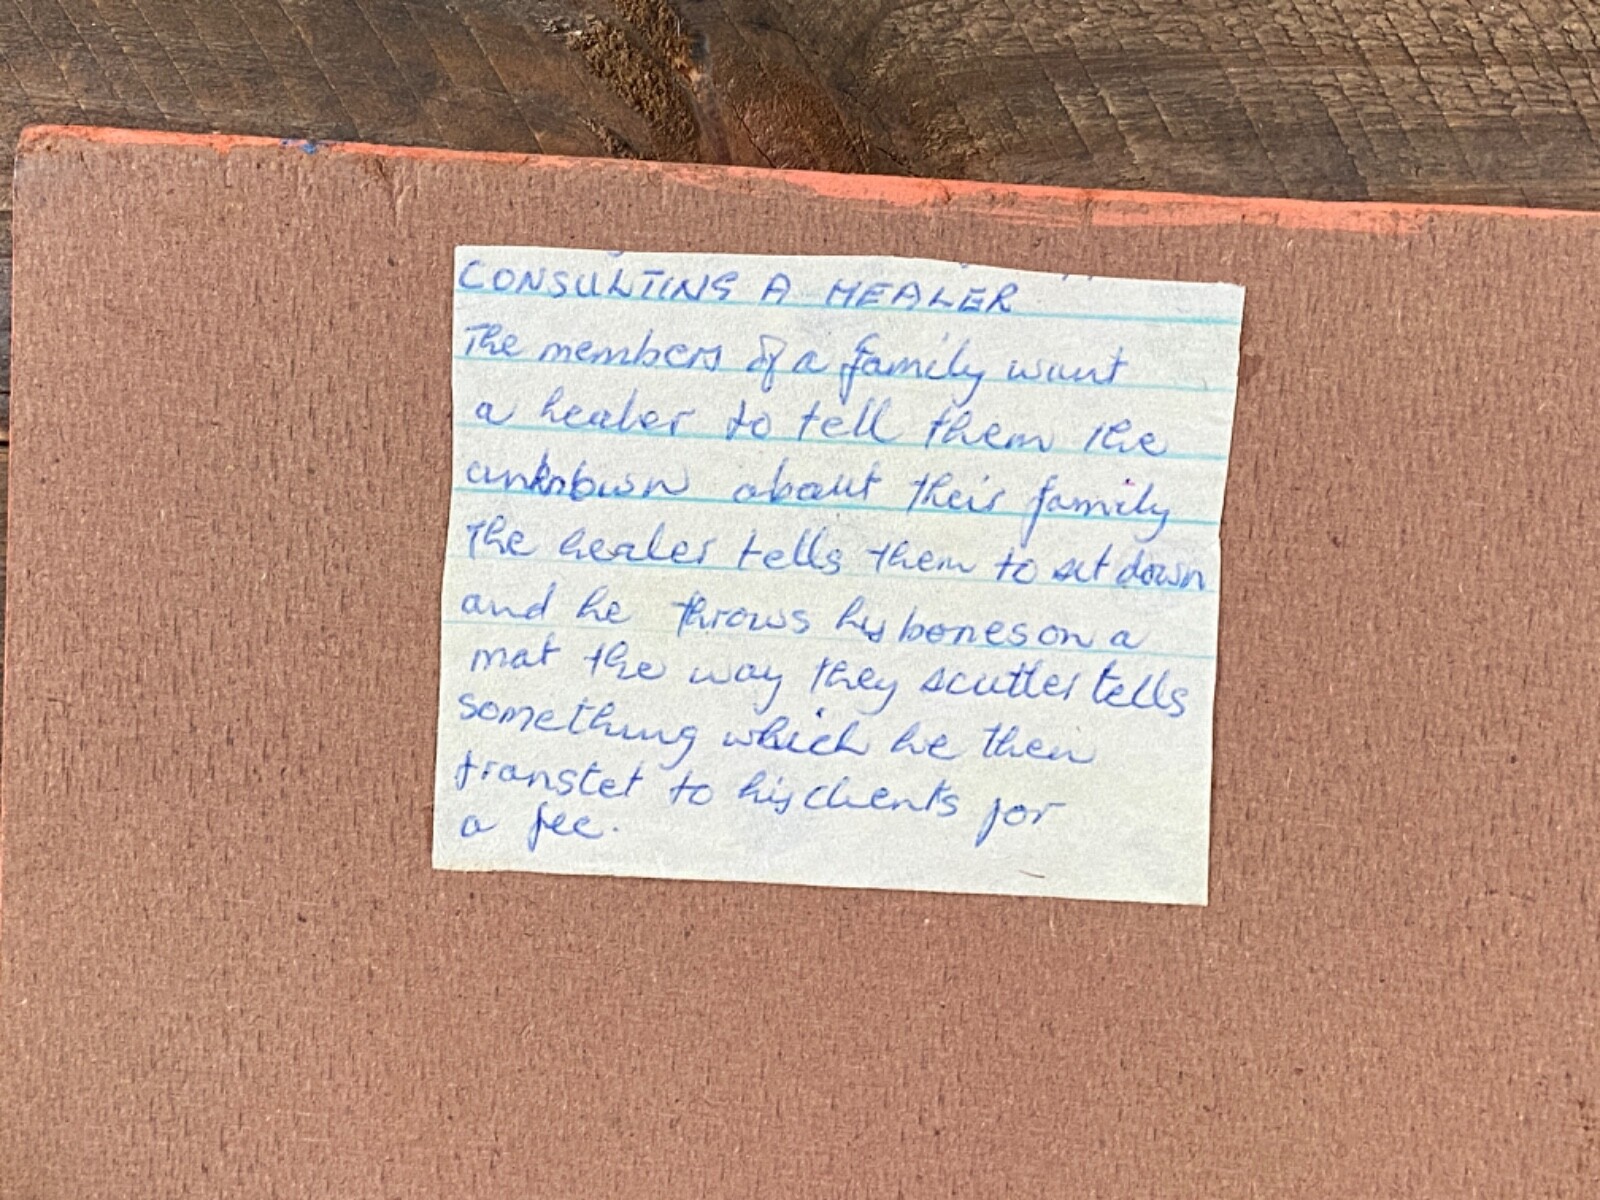 CONSULTING A HEALER
The members of a family want
a healer to tell them the
unknown about their family
The healer tells them to sit down
and he throws his bones on a
mat the way they scutter tells
something which he then
translet to his clients for
a fee.